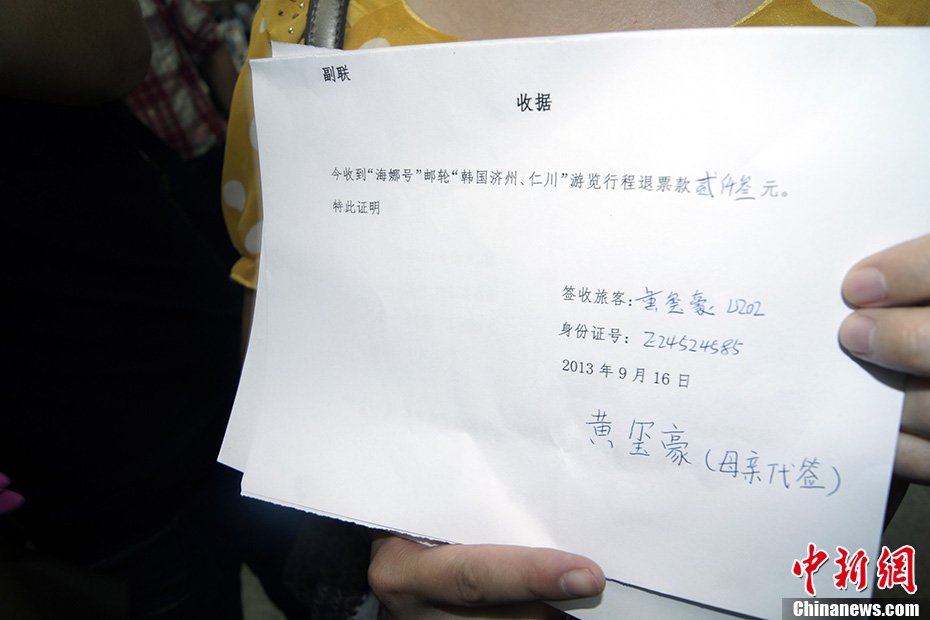 副联
收据
今收到“海娜号”邮轮“韩国济州、仁川”游览行程退票款贰仟叁元。
特此证明
签收旅客：黄玺豪 U202
身份证号：Z24524585
2013 年 9 月 16 日
黄玺豪（母亲代签）
中新網
Chinanews.com